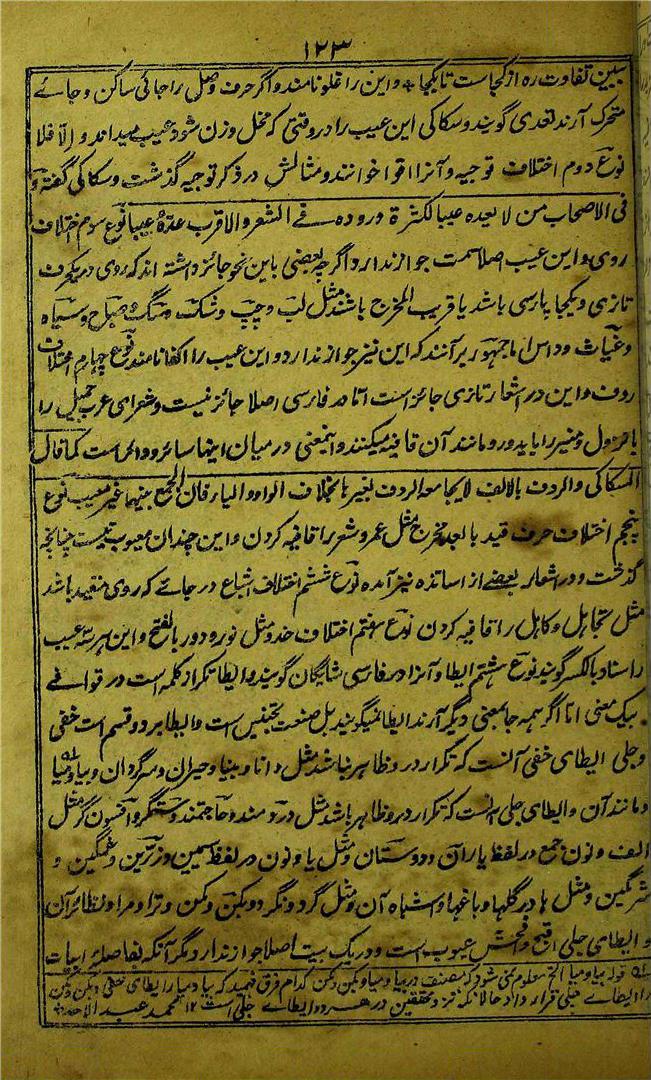 ۱۲۳
ببین تفاوت ره از کجاست تا بکجا ٭ و این را غلو نامند و اگر حرف وصل را جائی ساکن و جائے
متحرک آرند تعدی گویند و سکاکی این عیب را در وقتی که مخل وزن شود عیب میداند و الّا فلا
نوع دوم اختلاف توجیه و آنرا اقوا خوانند و مثالش در ذکر توجیه گذشت و سکاکی گفته و
فی الاصحاب من لا یعده عیبا لکثرة وروده فے الشعر و الاقرب عدّهٔ عیبا نوع سوم اختلاف
روی و این عیب اصلا سمت جواز ندارد اگرچه بعضی باین نحو جائز داشته اند که روی در یکحرف
تازی و یکجا پارسی باشد یا قریب المخرج باشند مثل لب و چپ و شک و سگ و صباح و سیاه
و غیاث و داس اما جمهور بر آنند که این نیز جواز ندارد و این عیب را اکفا نامند نوع چهارم اختلاف
روف و این در اشعار تازی جائز است اما در فارسی اصلا جائز نیست و شعرای عرب جمیل را
با نزول و منیر را با یدور و مانند آن قافیه میکنند و اینمعنی در میان اینها سائر و دائر است کما قال
السکاکی و الردف بالالف لا یجامعه الردف لغیرها بخلاف الواو و الیا فان الجمع بینهما غیر معیب نوع
پنجم اختلاف حرف قید با بعد مخرج مثل عمرو شعر را قافیه کردن و این چندان معیوب نیست چنانچه
گذشت و در اشعار بعضے از اساتذه نیز آمده نوع ششم اختلاف اشباع در جائے که روی مقید باشد
مثل تجاهل و کاهل را قافیه کردن نوع هفتم اختلاف حذو مثل نور و دور بالفتح و این هر سه عیب
را سناد بالکسر گویند نوع هشتم ایطا و آنرا در فارسی شایگان گویند و ایطا تکرار کلمه است در قوافے
بیک معنی اما اگر همه جا بمعنی دیگر آرند ایطا نمیگویند بل صنعت تجنیس است و ایطا بر دو قسم است خفی
و جلی ایطای خفی آنست که تکرار در و ظاهر نباشد مثل دانا و بینا و حیران و سرگردان و بیا و میا
و مانند آن و ایطای جلی آنست که تکرار در و ظاهر باشد مثل دردمند و حاجتمند و ستمگر و افسون گر مثل
الف و نون جمع در لفظ یاران و دوستان و مثل یا و نون در لفظ سیمین و زرین و غمگین و
شرمگین و مثل ها در گلها و باغها و اشباه آن و مثل گرد و نگرد و بکن و مکن و ترا و مرا و نظائر آن
و ایطای جلی اقبح و افحش عیوب است و در یک بیت اصلا جواز ندارد مگر آنکه بفاصلهٔ ابیات
قوله بیا و میا الخ معلوم نمی شود که مصنف در بیا و میا و بکن و مکن کدام فرق فهمید که بیا و میا را ایطای خفی و بکن و مکن
را ایطاے جلی قرار داد حالانکه نزد محققین در هر دو ایطاے جلی است ۱۲ محمد عبد الاحد